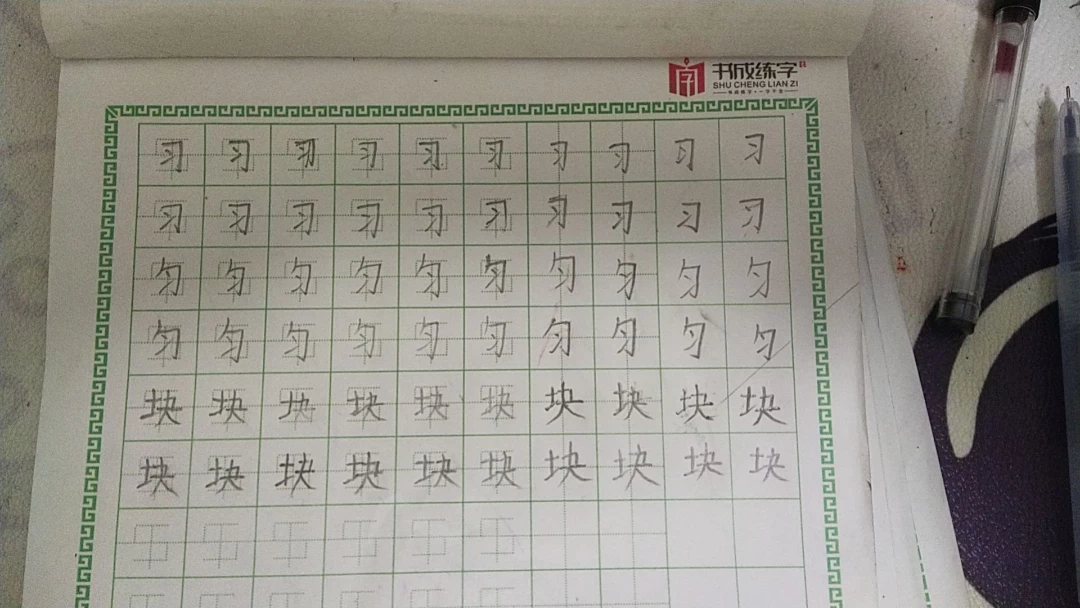 书成练字
SHU CHENG LIAN ZI
习 习 习 习 习 习 习 习 习 习
习 习 习 习 习 习 习 习 习 习
匀 匀 匀 匀 匀 匀 匀 匀 匀 匀
匀 匀 匀 匀 匀 匀 匀 匀 匀 匀
块 块 块 块 块 块 块 块 块 块
块 块 块 块 块 块 块 块 块 块